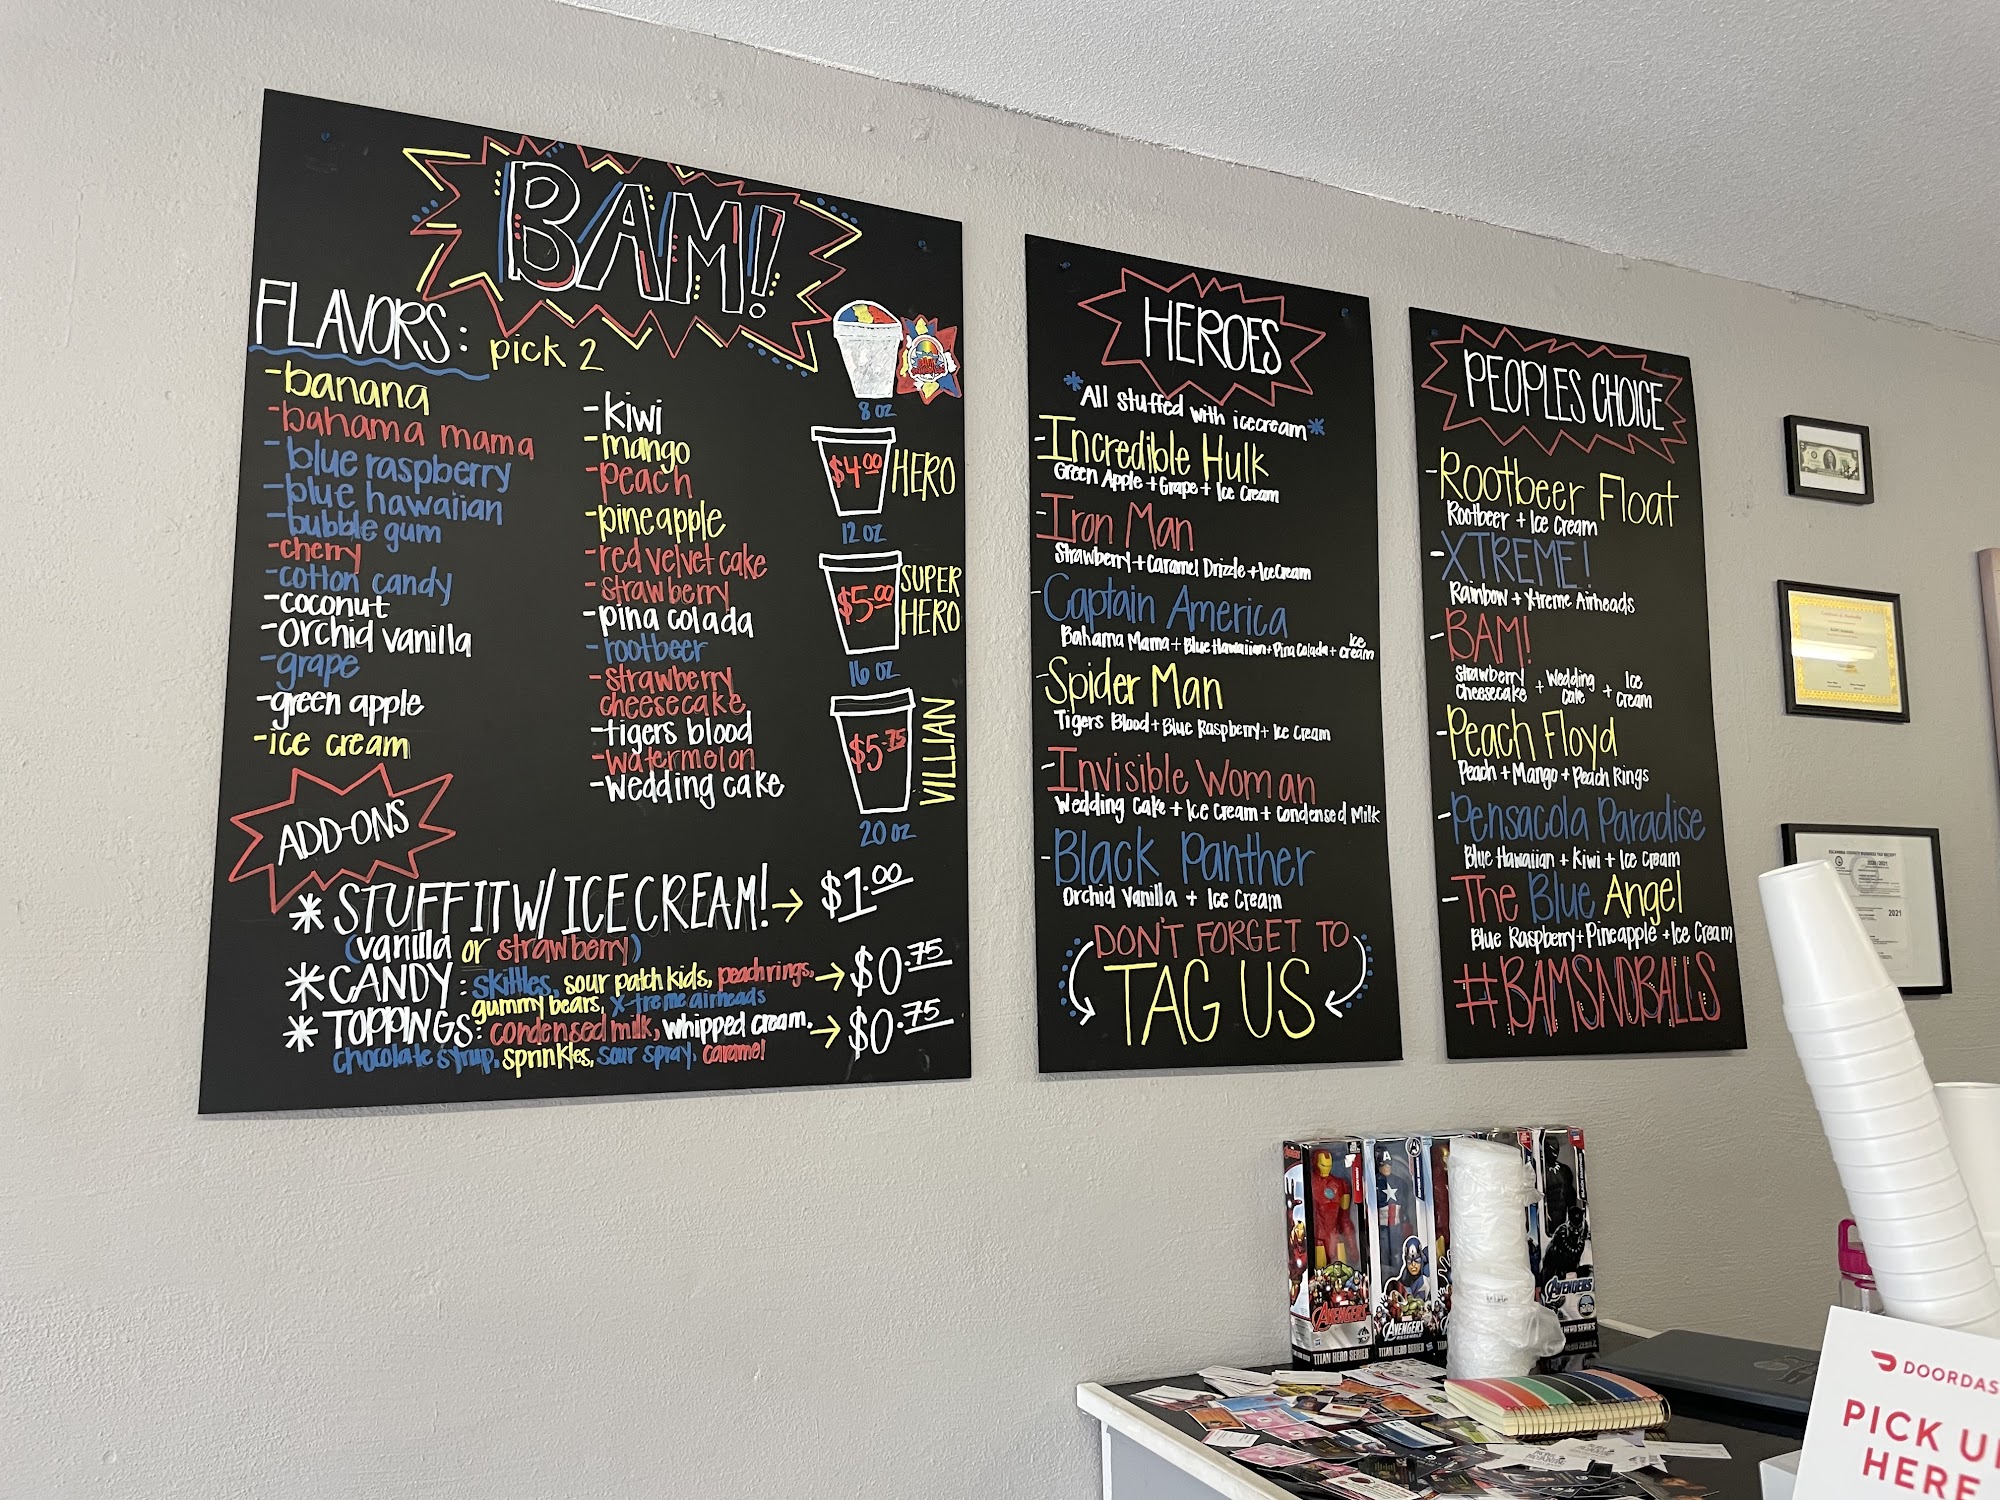 BAM!
FLAVORS: pick 2
-banana
-bahama mama
-blue raspberry
-blue hawaiian
-bubble gum
-cherry
-cotton candy
-coconut
-orchid vanilla
-grape
-green apple
-ice cream
-kiwi
-mango
-peach
-pineapple
-red velvet cake
-strawberry
-pina colada
-rootbeer
-strawberry
cheesecake
-tigers blood
-watermelon
-wedding cake
8 oz
$4.00 HERO
12 oz
$5.00 SUPER
HERO
16 oz
$5.75 VILLIAN
20 oz
ADD-ONS
*STUFF IT W/ ICE CREAM! → $1.00
(vanilla or strawberry)
*CANDY: skittles, sour patch kids, peach rings, → $0.75
gummy bears, x-treme airheads
*TOPPINGS: condensed milk, whipped cream, → $0.75
chocolate syrup, sprinkles, sour spray, caramel
HEROES
*All stuffed with icecream*
-Incredible Hulk
Green Apple + Grape + Ice Cream
-Iron Man
Strawberry + Caramel Drizzle + Ice Cream
-Captain America
Bahama Mama + Blue Hawaiian + Pina Colada + Ice Cream
-Spider Man
Tigers Blood + Blue Raspberry + Ice Cream
-Invisible Woman
Wedding Cake + Ice Cream + Condensed Milk
-Black Panther
Orchid Vanilla + Ice Cream
DON'T FORGET TO
TAG US
PEOPLES CHOICE
-Rootbeer Float
Rootbeer + Ice Cream
-XTREME!
Rainbow + Xtreme Airheads
-BAM!
Strawberry Cheesecake + Wedding Cake + Ice Cream
-Peach Floyd
Peach + Mango + Peach Rings
-Pensacola Paradise
Blue Hawaiian + Kiwi + Ice Cream
-The Blue Angel
Blue Raspberry + Pineapple + Ice Cream
#BAMSNOBALLS
2020 / 2021
2021
AVENGERS
TITAN HERO SERIES
AVENGERS
TITAN HERO SERIES
AVENGERS
HERO SERIES
DOORDAS
PICK U
HERE